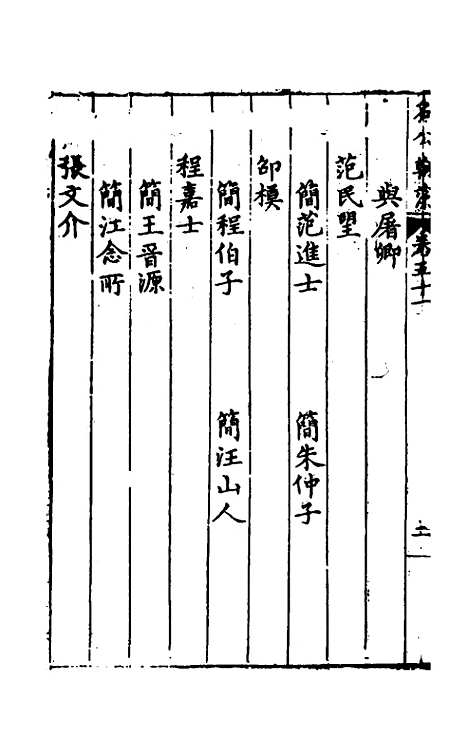 名公翰藻卷五十一
與屠卿
范民望
簡范進士　簡朱仲子
邵模
簡程伯子　簡汪山人
程嘉士
簡王晋源
簡江念所
張文介